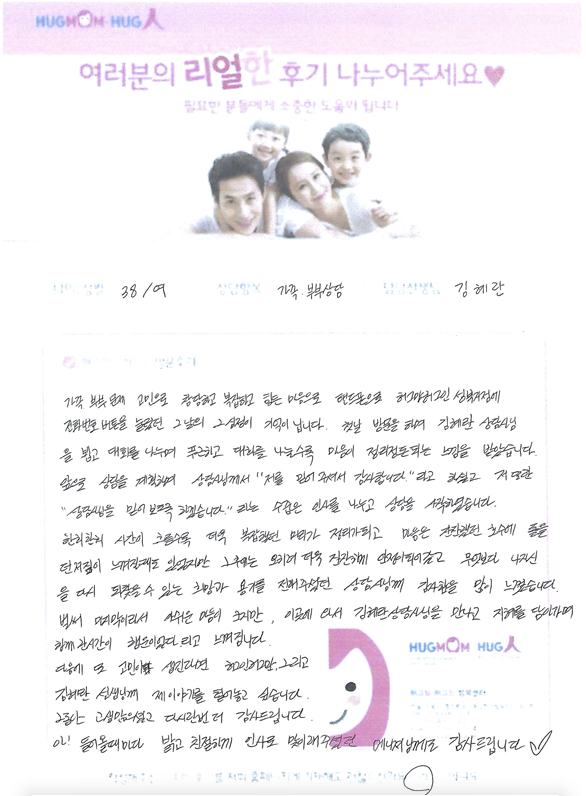 HUGMOM HUG人
여러분의 리얼한 후기 나누어주세요♥
필요한 분들에게 소중한 도움이 됩니다
38/여 상담항목 가족.부부상담 담당선생님 김혜란
가족 부부문제 고민으로 황당하고 복잡하고 힘든 마음으로 핸드폰으로 허그맘허그인 성북지점에
전화번호 버튼을 눌렀던 그날의 그심정이 기억이 납니다. 첫날 방문을 하여 김혜란 상담사님
을 뵙고 대화를 나누며 푸근하고 대화를 나눌수록 마음이 정리정돈되는 느낌을 받았습니다.
앞으로 상담을 계획하며 상담사님께서 "저를 믿어주셔서 감사합니다."라고 하셨고 저 또한
"상담사님을 믿어보도록 하겠습니다."라는 수줍은 인사를 나누고 상담을 시작하였습니다.
한회한회 시간이 흐를수록 더욱 복잡했던 머리가 정리가되고 마음은 잔잔했던 호수에 돌을
던져짐이 느껴질때도 있었지만 그후에는 오히려 더욱 잔잔하게 안정이되어갔고 무엇보다 나자신
을 다시 되찾을수 있는 희망과 용기를 전해주셨던 상담사님께 감사함을 많이 느꼈습니다.
벌써 마지막이라서 아쉬운 마음이 크지만, 이곳에 와서 김혜란상담사님을 만나고 지혜를 담아가며
함께한시간이 행운이였다 라고 느껴집니다.
다음에 또 고민이 생긴다면 허그인허그맘, 그리고
김혜란 선생님께 제이야기를 털어놓고 싶습니다.
그동안 고생많으셨고 다시한번 더 감사드립니다.
아! 들어올때마다 밝고 친절하게 인사로 맞이해주셨던 매니저님께도 감사드립니다
HUGMOM HUG人